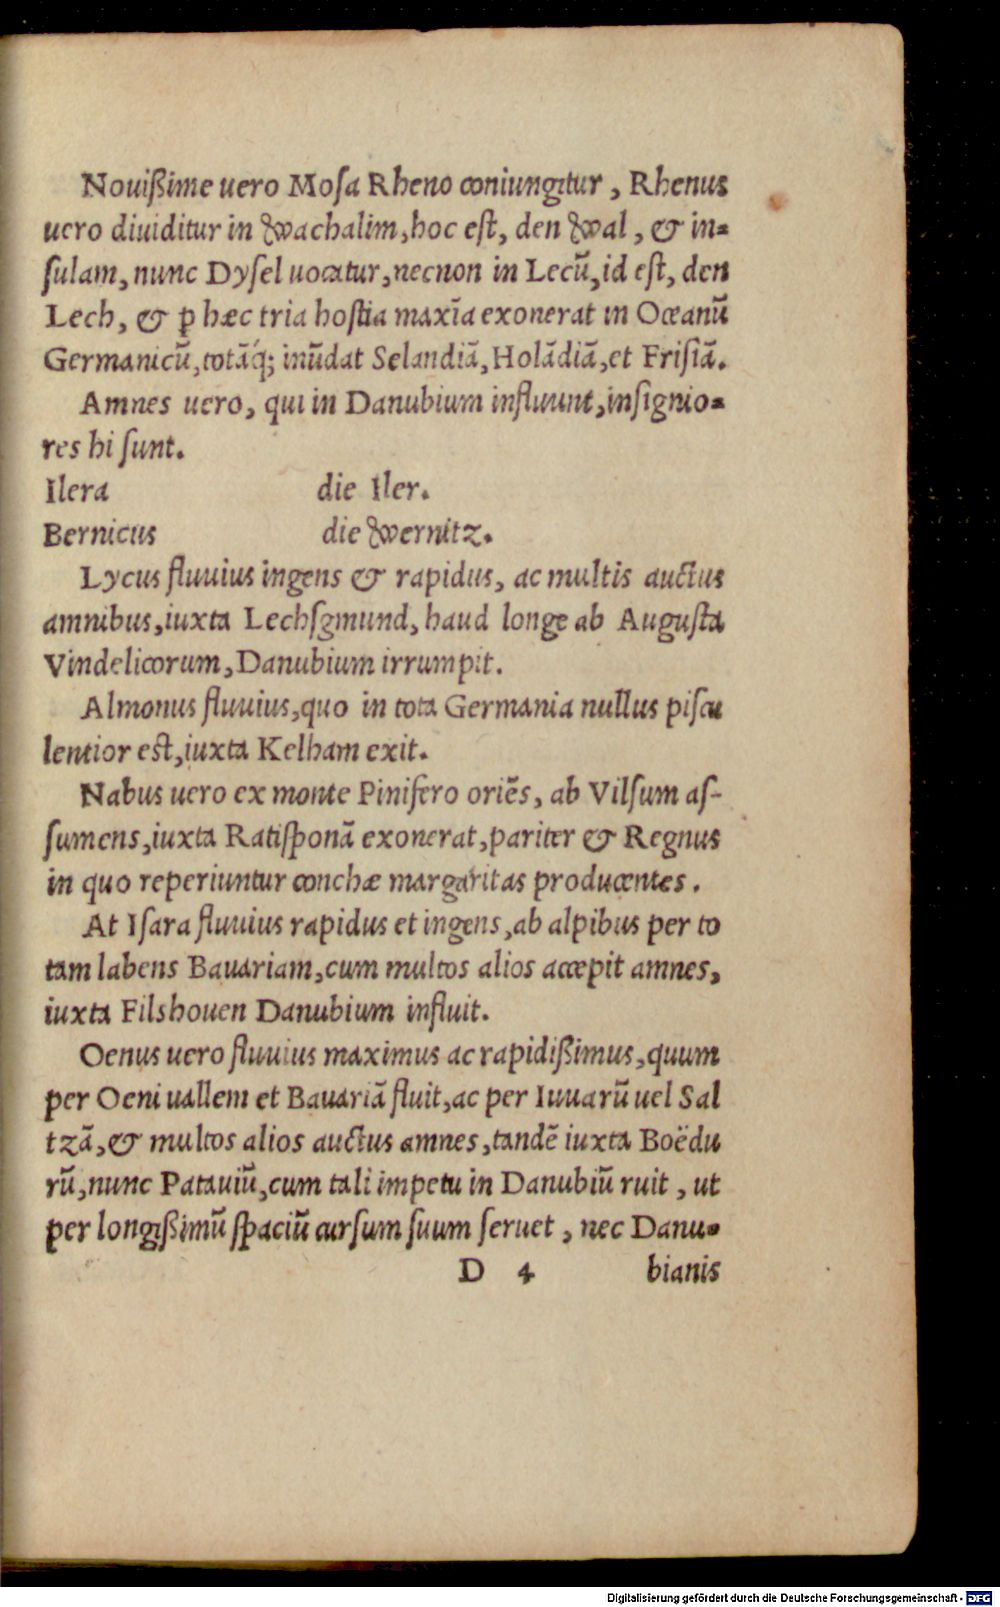 Nouißime uero Moſa Rheno coniungitur, Rhenus
uero diuiditur in Wachalim, hoc eſt, den Wal, & in-
ſulam, nunc Dyſel uocatur, necnon in Lecũ, id eſt, den
Lech, & ꝑ hæc tria hoſtia maxĩa exonerat in Oceanũ
Germanicũ, totãq́; inũdat Selandiã, Holãdiã, et Friſiã.
Amnes uero, qui in Danubium influunt, inſignio-
res hi ſunt.
Ilera die Iler.
Bernicus die Wernitz.
Lycus fluuius ingens & rapidus, ac multis auctus
amnibus, iuxta Lechſgmund, haud longe ab Auguſta
Vindelicorum, Danubium irrumpit.
Almonus fluuius, quo in tota Germania nullus piſcu
lentior eſt, iuxta Kelham exit.
Nabus uero ex monte Pinifero oriẽs, ab Vilſum aſ-
ſumens, iuxta Ratiſponã exonerat, pariter & Regnus
in quo reperiuntur conchæ margaritas producentes.
At Iſara fluuius rapidus et ingens, ab alpibus per to
tam labens Bauariam, cum multos alios accepit amnes,
iuxta Filshouen Danubium influit.
Oenus uero fluuius maximus ac rapidißimus, quum
per Oeni uallem et Bauariã fluit, ac per Iuuarũ uel Sal
tzã, & multos alios auctus amnes, tandẽ iuxta Boëdu
rũ, nunc Patauiũ, cum tali impetu in Danubiũ ruit, ut
per longißimũ ſpaciũ curſum ſuum ſeruet, nec Danu-
D 4 bianis
Digitalisierung gefördert durch die Deutsche Forschungsgemeinschaft - DFG